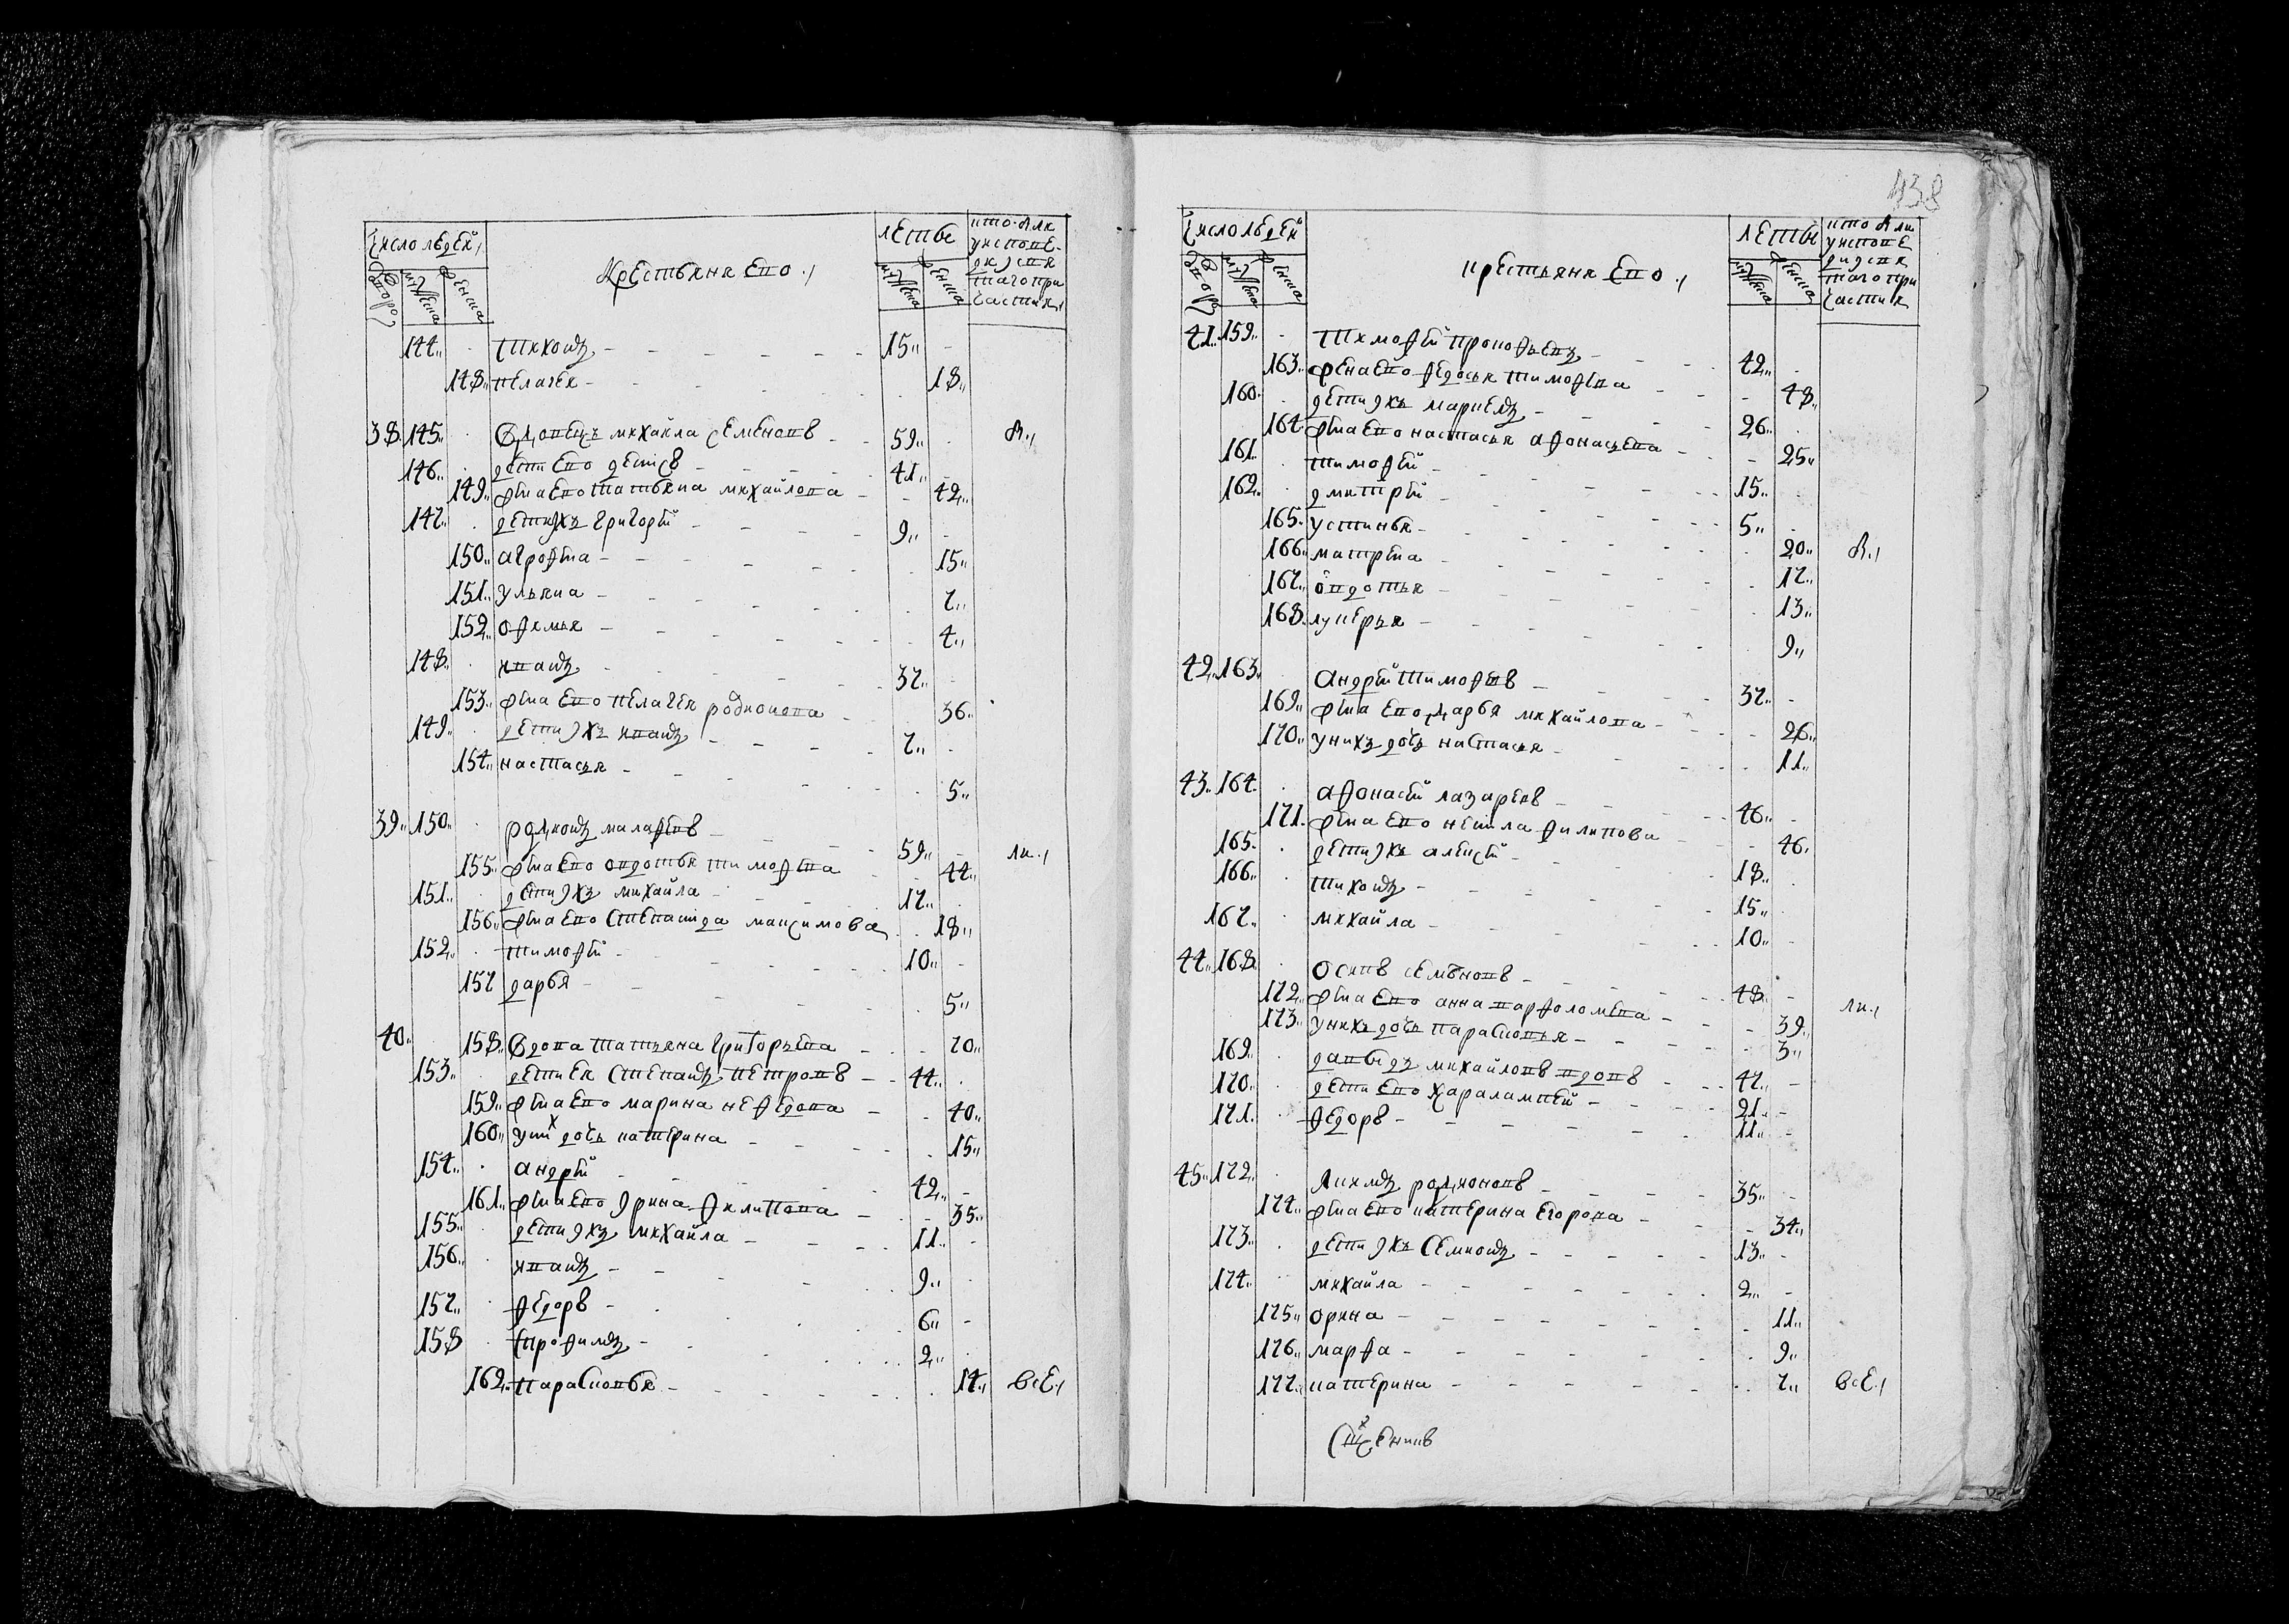 число людей
дворо
мужеска
женска
крестьяня ево
леты
мужеска
женска
кто были
у исповеди и святаго причастия
144 Тихонъ 15
148 пелагея 18
38 145 Вдовецъ михаила семеновъ 59 были
146 дети ево денисъ 41
149 жена ево татьяна михайлова 42
147 дети ихъ григорей 9
150 агрофена 15
151 ульяна 7
152 офимья 4
148 иванъ 37
153 жена ево пелагея родионова 36
149 дети ихъ иванъ 7
154 настасья 5
39 150 родионъ малафеевъ 59 ли
155 жена ево овдотья тимофеева 44
151 дети ихъ михайла 17
156 жена ево степанида максимова 18
152 тимофей 10
157 дарья 5
40 158 Вдова татьяна григорьева 70
153 дети ея степанъ петровъ 44
159 жена ево марина нефедова 40
160 у них дочь катерина 15
154 андрей 42
161 жена ево ирина филипова 35
155 дети ихъ михайла 11
156 иванъ 9
157 федоръ 6
158 трофимъ 2
162 парасковья 14 все
438
число людей
дворо
мужеска
женска
крестьяня ево
леты
мужеска
женска
кто были
у исповеди и святаго причастия
41 159 Тимофей прокофьевъ 42
163 жена ево федосья тимофева 48
160 дети ихъ маркелъ 26
164 жена ево настасья афонасьева 25
161 тимофей 15
162 дмитрей 5
165 устинья 20 были
166 матрена 17
167 овдотья 13
168 лукерья 9
42 163 андрей тимофеевъ 37
169 жена ево дарья михайлова 26
170 у нихъ дочь настасья 11
43 164 афонасей лазаревъ 46
171 жена ево некила филипова 46
165 дети ихъ алексей 18
166 тихонъ 15
167 михайла 10
44 168 осипъ семеновъ 48
172 жена ево анна варфоломеева 39 ли
173 у нихъ дочь парасковья 3
169 давыдъ михайловъ вдовъ 47
170 дети ево харалампей 21
171 федоръ 11
45 172 якимъ родионовъ 35
174 жена ево катерина егорова 34
173 дети ихъ семионъ 13
174 михайла 2
175 орина 11
176 марфа 9
177 катерина 7 все